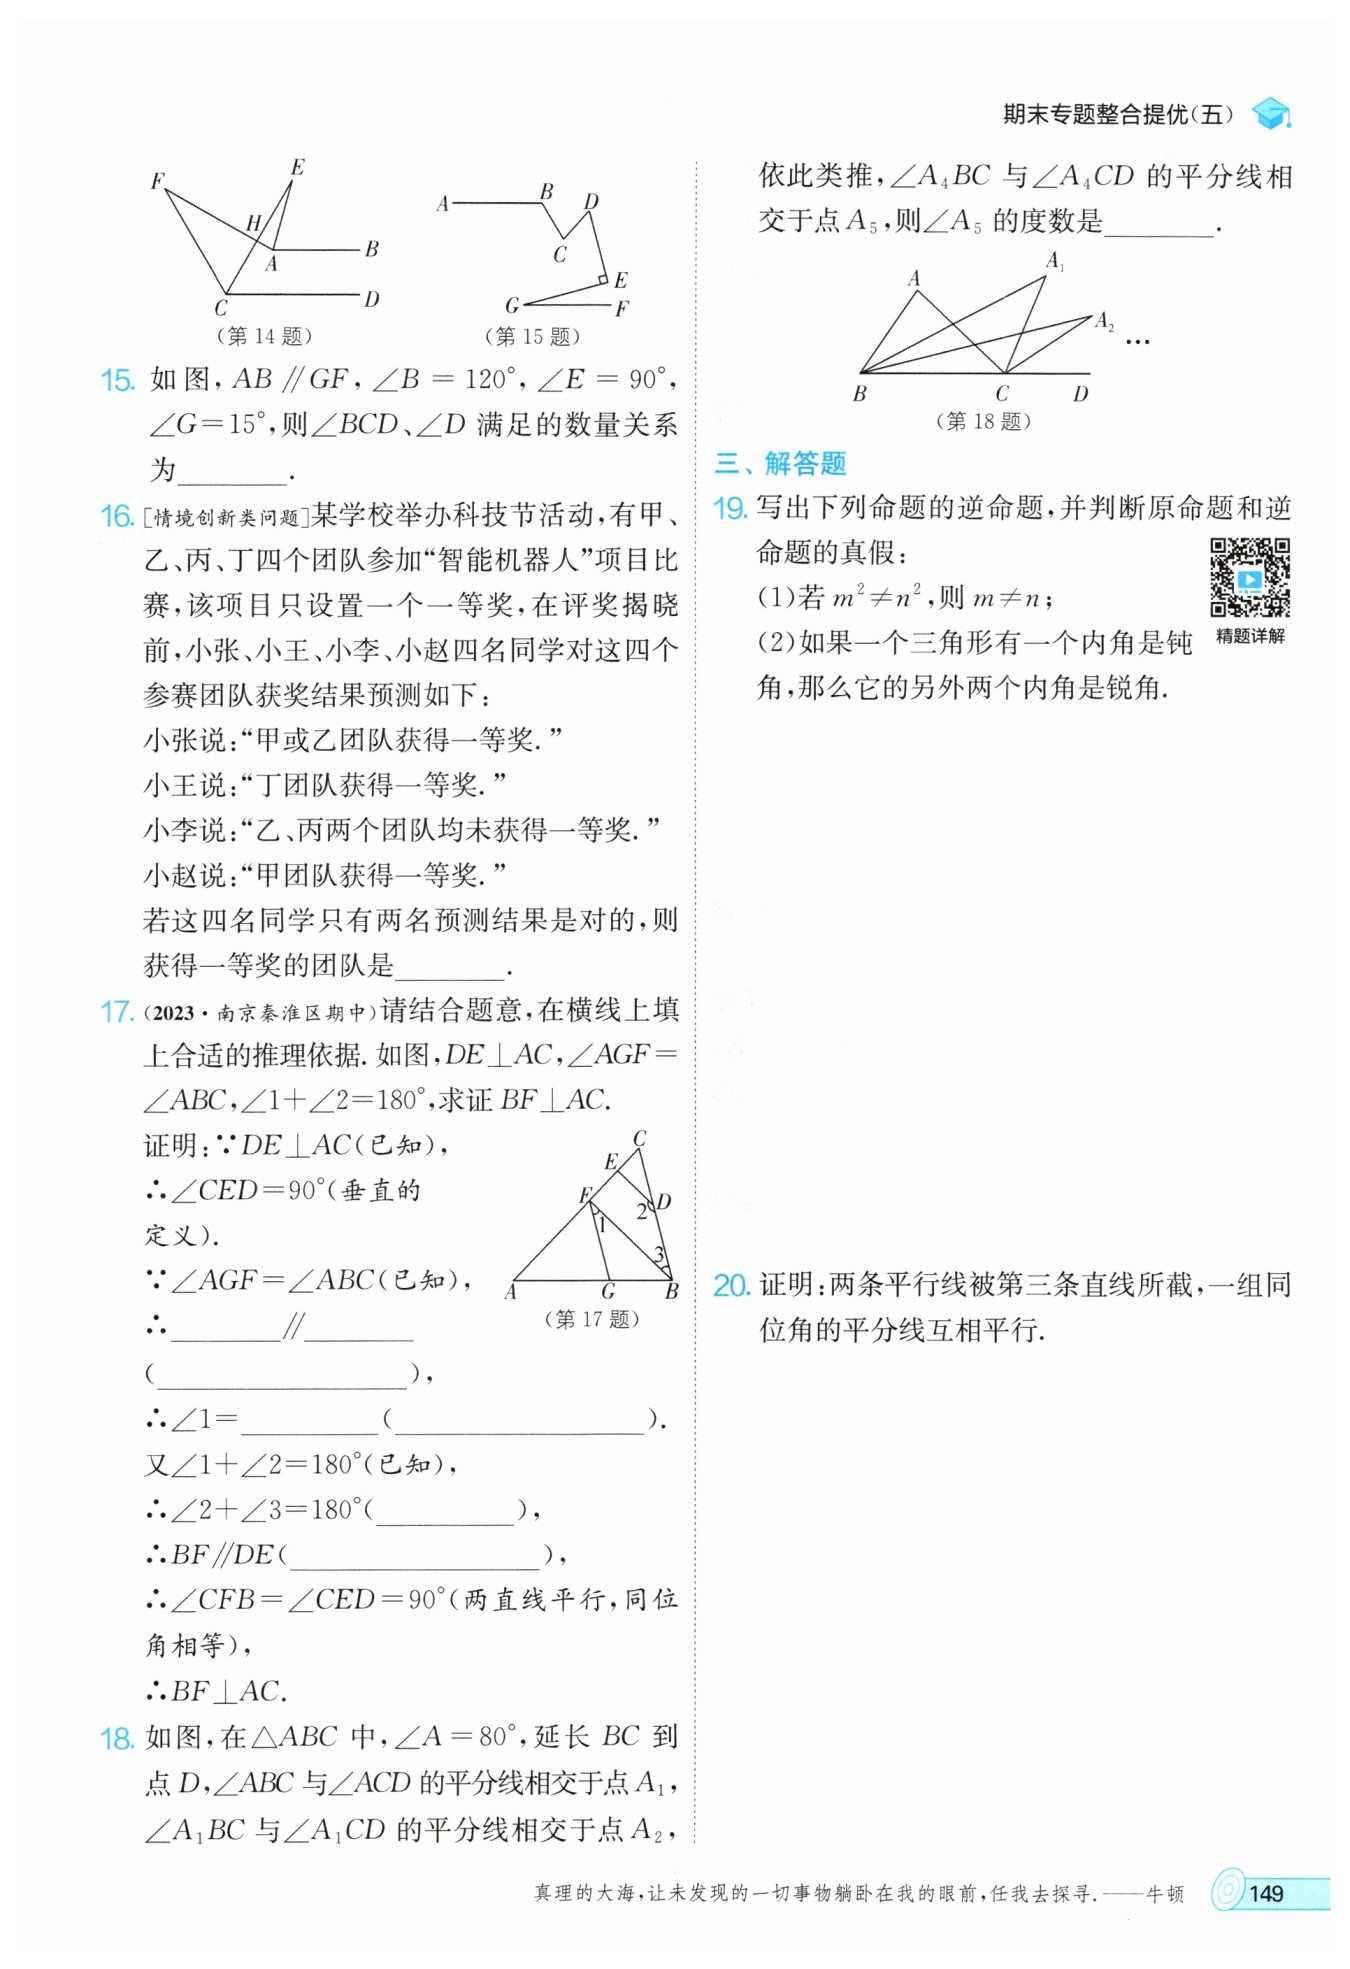 期末专题整合提优(五)
F
E
H
A
B
C
D
(第14题)
A
B
D
C
E
G
F
(第15题)
15. 如图,AB∥GF,∠B=120°,∠E=90°,
∠G=15°,则∠BCD、∠D 满足的数量关系
为________.
16. [情境创新类问题]某学校举办科技节活动,有甲、
乙、丙、丁四个团队参加“智能机器人”项目比
赛,该项目只设置一个一等奖,在评奖揭晓
前,小张、小王、小李、小赵四名同学对这四个
参赛团队获奖结果预测如下:
小张说:“甲或乙团队获得一等奖.”
小王说:“丁团队获得一等奖.”
小李说:“乙、丙两个团队均未获得一等奖.”
小赵说:“甲团队获得一等奖.”
若这四名同学只有两名预测结果是对的,则
获得一等奖的团队是________.
17. (2023·南京秦淮区期中)请结合题意,在横线上填
上合适的推理依据.如图,DE⊥AC,∠AGF=
∠ABC,∠1+∠2=180°,求证 BF⊥AC.
证明:∵DE⊥AC(已知),
∴∠CED=90°(垂直的
定义).
∵∠AGF=∠ABC(已知),
∴________∥________
(__________________),
∴∠1=__________(__________________).
又∠1+∠2=180°(已知),
∴∠2+∠3=180°(__________),
∴BF∥DE(__________________),
∴∠CFB=∠CED=90°(两直线平行,同位
角相等),
∴BF⊥AC.
C
E
F
D
2
1
3
A
G
B
(第17题)
18. 如图,在△ABC 中,∠A=80°,延长 BC 到
点 D,∠ABC 与∠ACD 的平分线相交于点 A₁,
∠A₁BC 与∠A₁CD 的平分线相交于点 A₂,
依此类推,∠A₄BC 与∠A₄CD 的平分线相
交于点 A₅,则∠A₅ 的度数是________.
A
A₁
A₂
…
B
C
D
(第18题)
三、解答题
19. 写出下列命题的逆命题,并判断原命题和逆
命题的真假:
(1)若 m²≠n²,则 m≠n;
(2)如果一个三角形有一个内角是钝
角,那么它的另外两个内角是锐角.
精题详解
20. 证明:两条平行线被第三条直线所截,一组同
位角的平分线互相平行.
真理的大海,让未发现的一切事物躺卧在我的眼前,任我去探寻.——牛顿
149